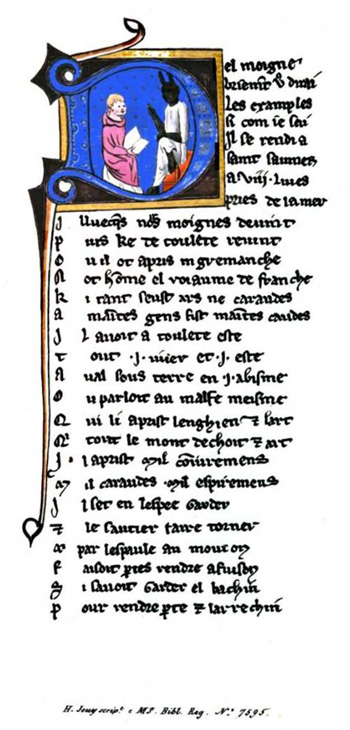 Del moigne
briement v9 dirai
Les examples
si com ie sai
Il se rendi a
saint saumer
A .viij. liues
pres de la mer
J lluecq̃s noirs moignes deuint
P uis ke de toulete reuint
O u il ot apris nigremanche
N ot hōme el roiaume de franche
K i tant seust ars ne caraudes
A maītes gens fist maītes caudes
J l auoit a toulete este
T out .j. iuier et .j. este
A ual sous terre en .j. abisme
O u parloit au malfe meisme
Q ui li aprist lenghien ⁊ lart
Q̃ tout le mont dechoit ⁊ art
J l aprist mil cōiuremens
M il caraudes mil espiremens
J l set en lespee garder
⁊ le sautier faire torner
⁊ par lespaule au mouton
F aisoit ꝑtes rendre a fuison
J l sauoit garder el bachin
P our rendre ꝑte ⁊ larrechin
H. Jouy scripᵗ. e MS. Bibl. Reg. Nº. 7595.